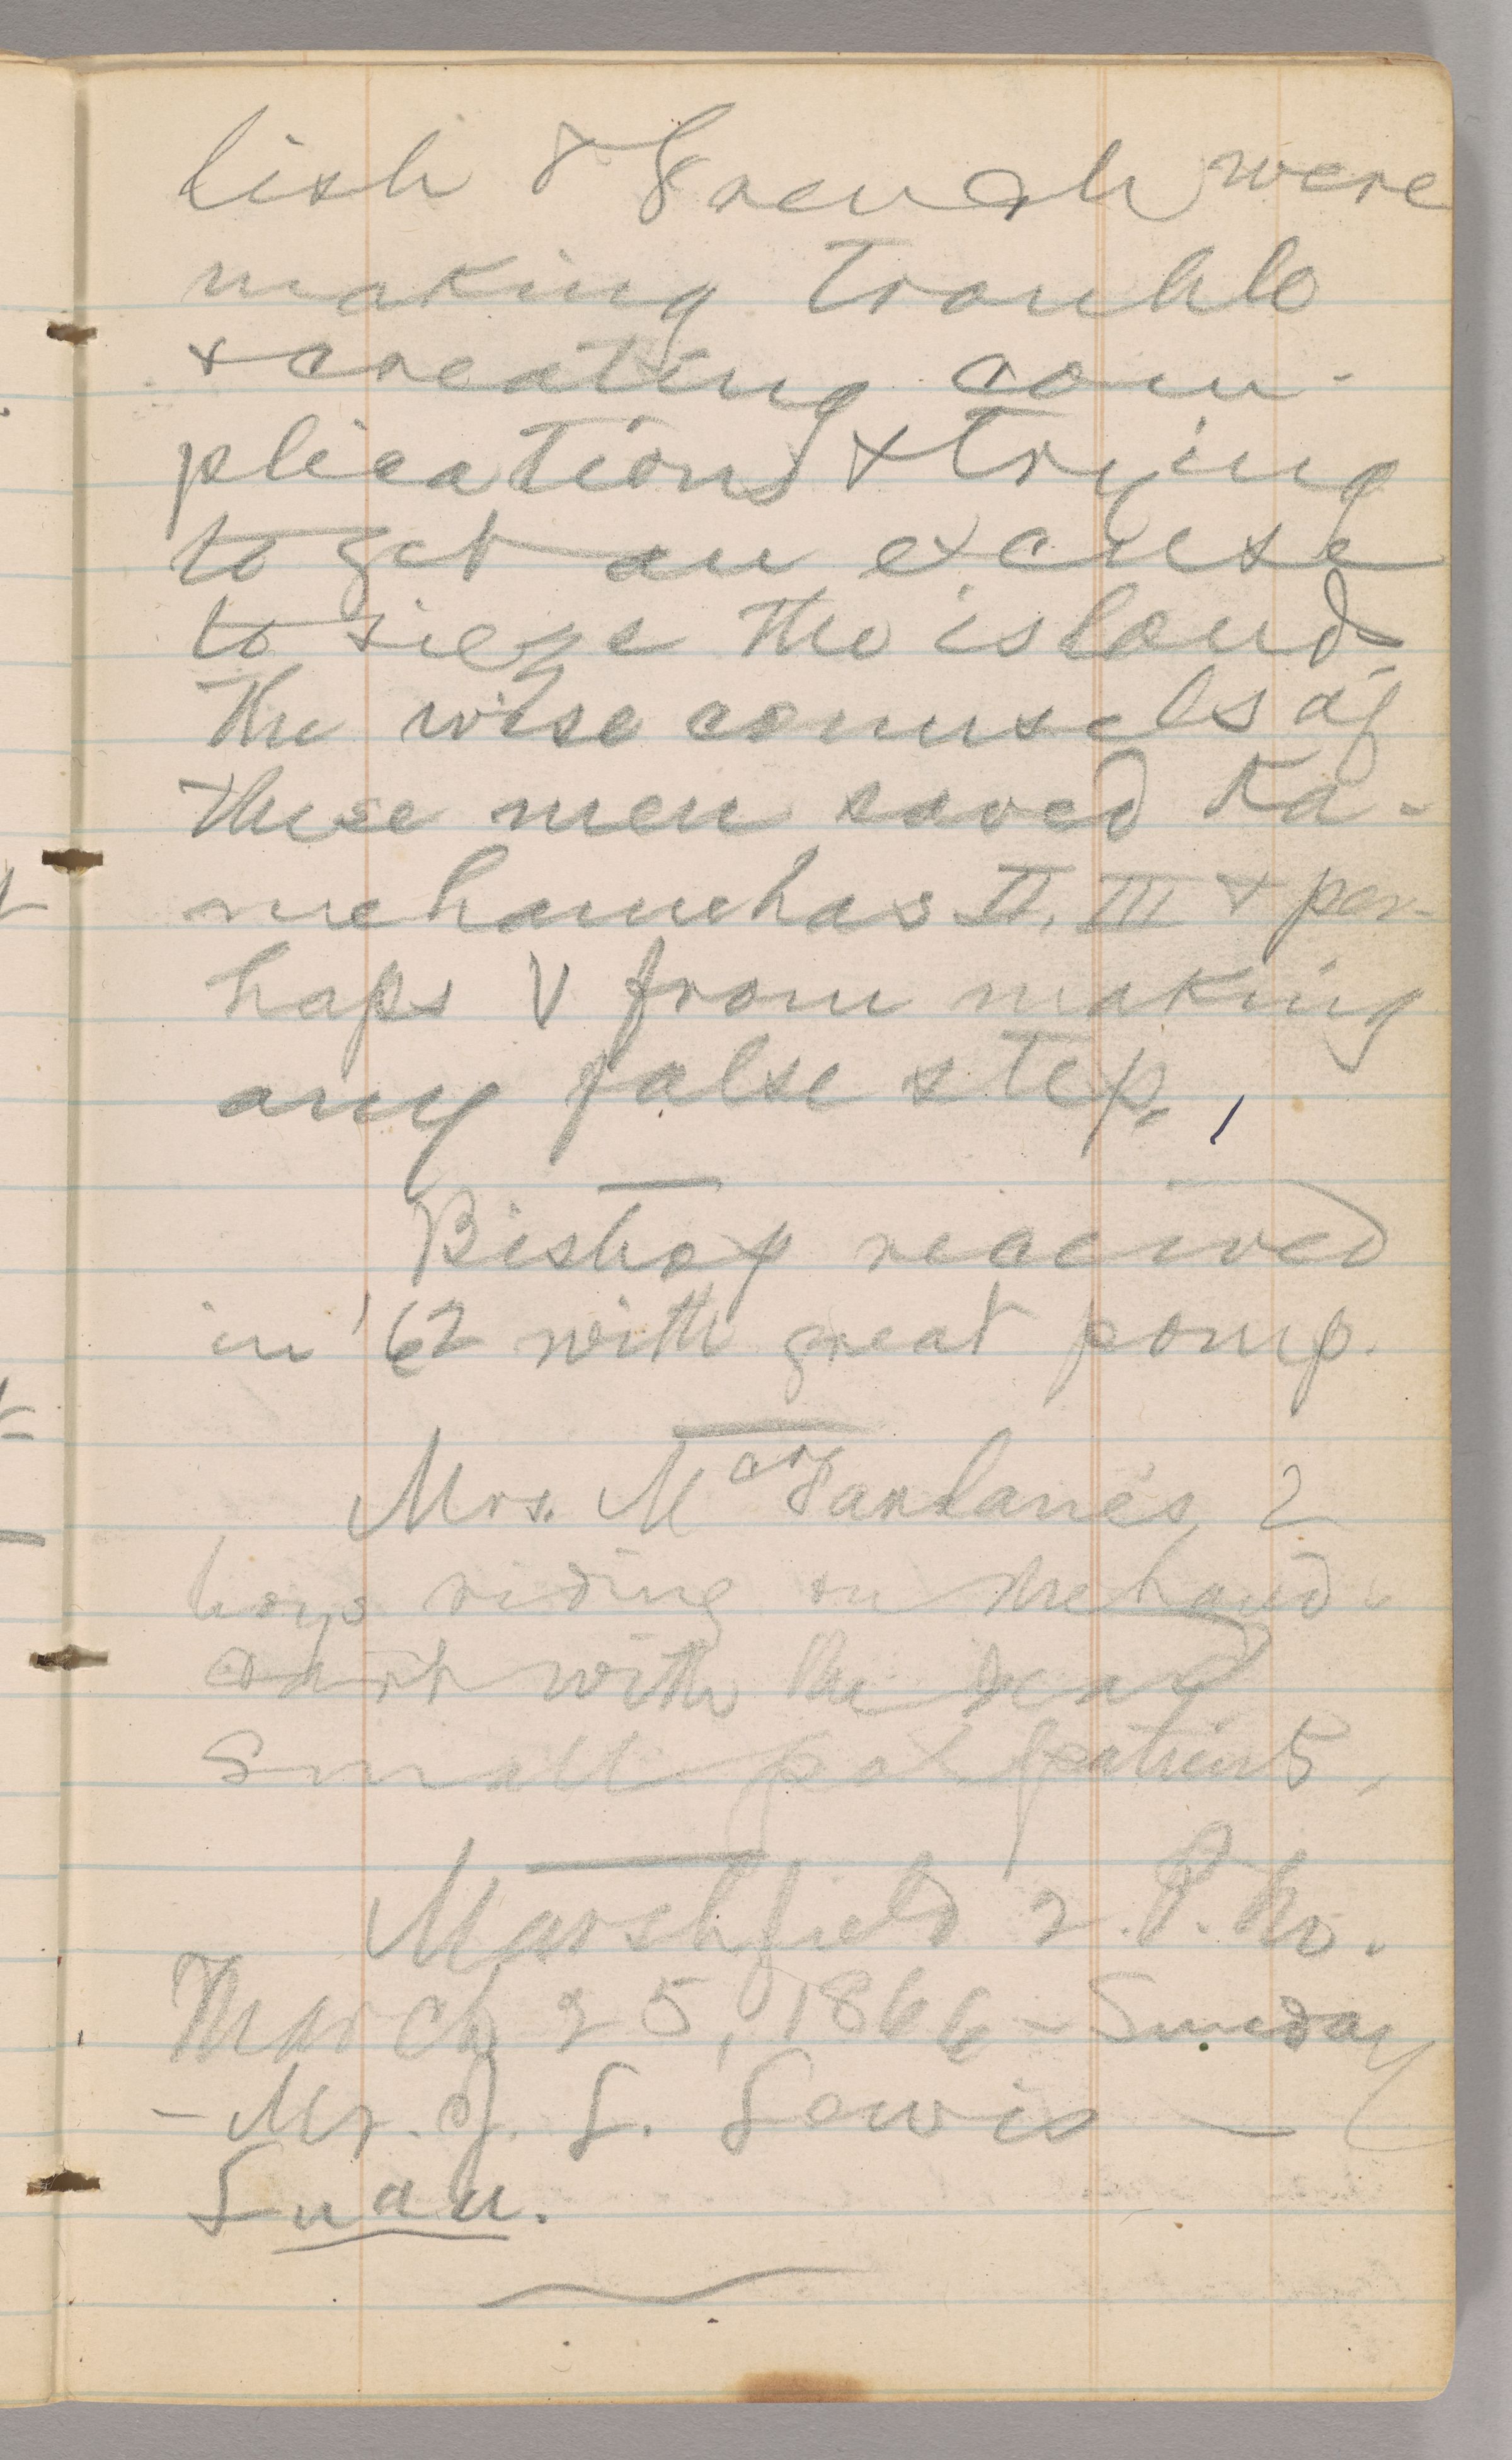 lish & French were
making trouble
& creating com-
plications & trying
to get an excuse
to sieze the islands.
The wise counsels of
these men saved Ka-
mehamehas II, III & per-
haps V from making
any false step.
Bishop received
in '62 with great pomp.
Mrs. Macfarlane's 2
boys riding on the hand-
cart with the dead
small pox patients.
Marshfield 2. P. No.
March 25, 1866 - Sunday
- Mr. J. L. Lewis —
Luau.